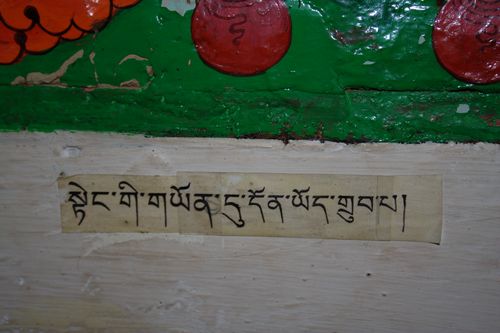 སྟེང་གི་གཡོན་དུ་དོན་ཡོད་གྲུབ་པ།